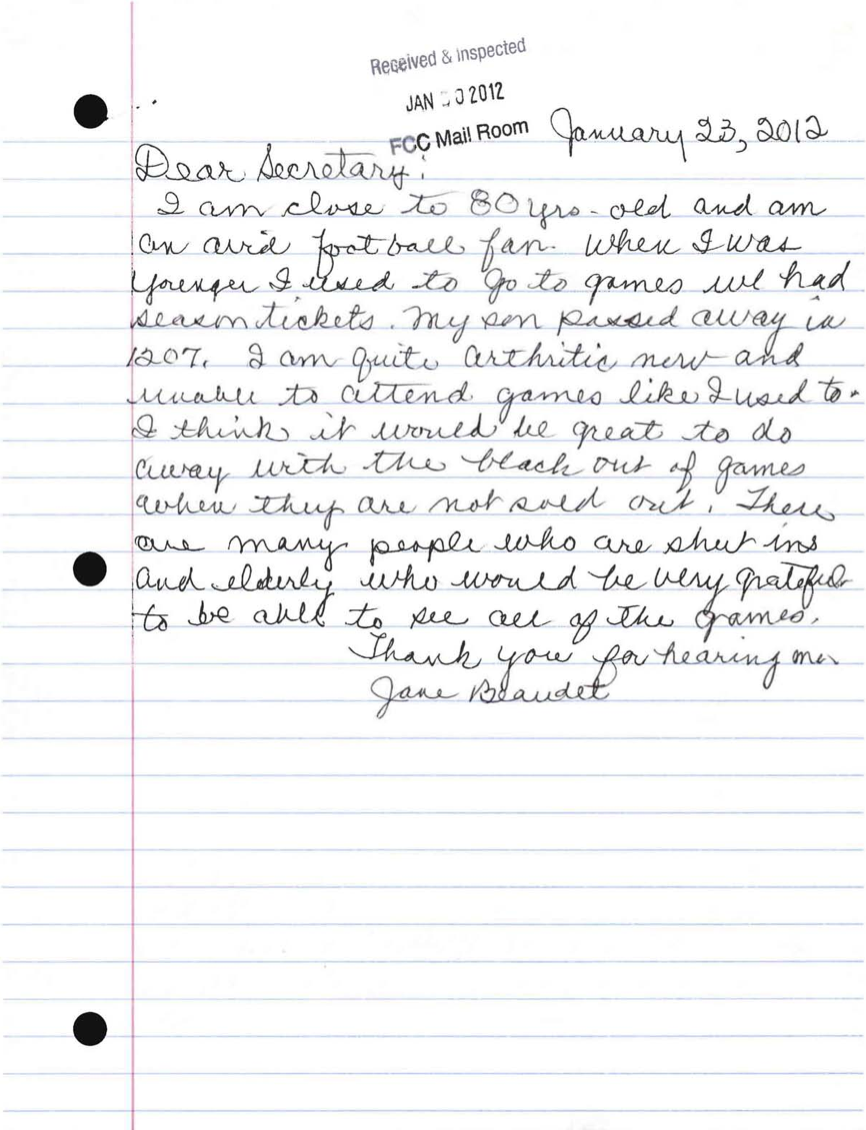 Received & Inspected
JAN 30 2012
FCC Mail Room
January 23, 2012
Dear Secretary:
I am close to 80 yrs-old and am
an avid football fan. When I was
younger I used to go to games we had
season tickets. My son passed away in
1207. I am quite arthritic now and
unable to attend games like I used to.
I think it would be great to do
away with the black out of games
when they are not sold out. There
are many people who are shut ins
and elderly who would be very grateful
to be able to see all of the games.
Thank you for hearing me.
Jane Beaudet